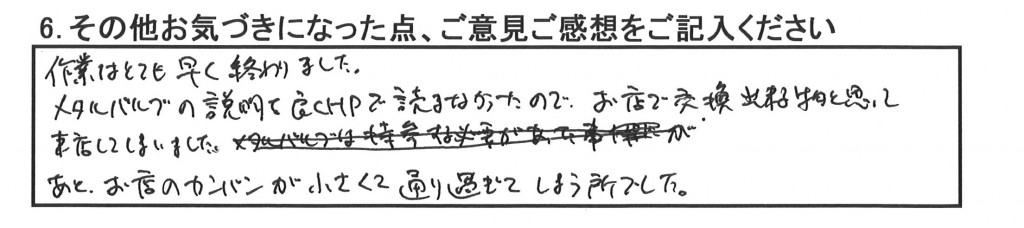 6.その他お気づきになった点、ご意見ご感想をご記入ください
作業はとても早く終わりました。
メタルバルブの説明を良くHPで読まなかったので、お店で交換出来る物と思って
来店してしまいました。メタルバルブは持参する必要があった事 が
あと、お店のカンバンが小さくて通り過ぎてしまう所でした。